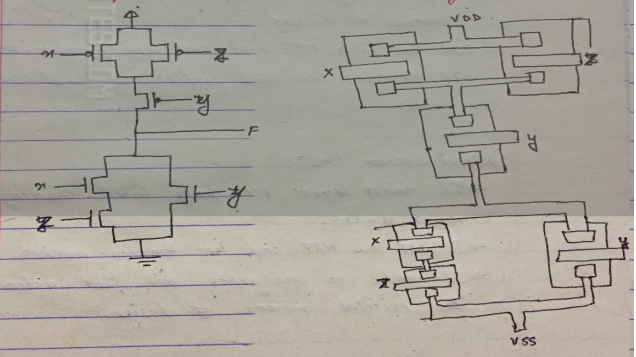 x z
y
F
x y
z
VDD
x z
y
x y
z
VSS